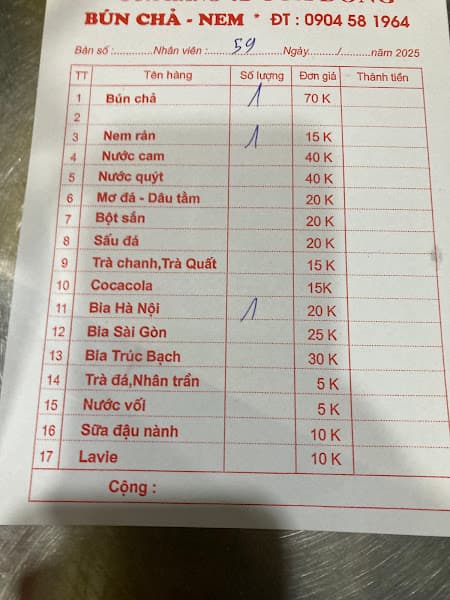 BÚN CHẢ - NEM * ĐT : 0904 58 1964
Bàn số :..........Nhân viên : 59 Ngày......./.........năm 2025
TT Tên hàng Số lượng Đơn giá Thành tiền
1 Bún chả 1 70 K
2
3 Nem rán 1 15 K
4 Nước cam 40 K
5 Nước quýt 40 K
6 Mơ đá - Dâu tằm 20 K
7 Bột sắn 20 K
8 Sấu đá 20 K
9 Trà chanh,Trà Quất 15 K
10 Cocacola 15K
11 Bia Hà Nội 1 20 K
12 Bia Sài Gòn 25 K
13 Bia Trúc Bạch 30 K
14 Trà đá,Nhân trần 5 K
15 Nước vối 5 K
16 Sữa đậu nành 10 K
17 Lavie 10 K
Cộng :